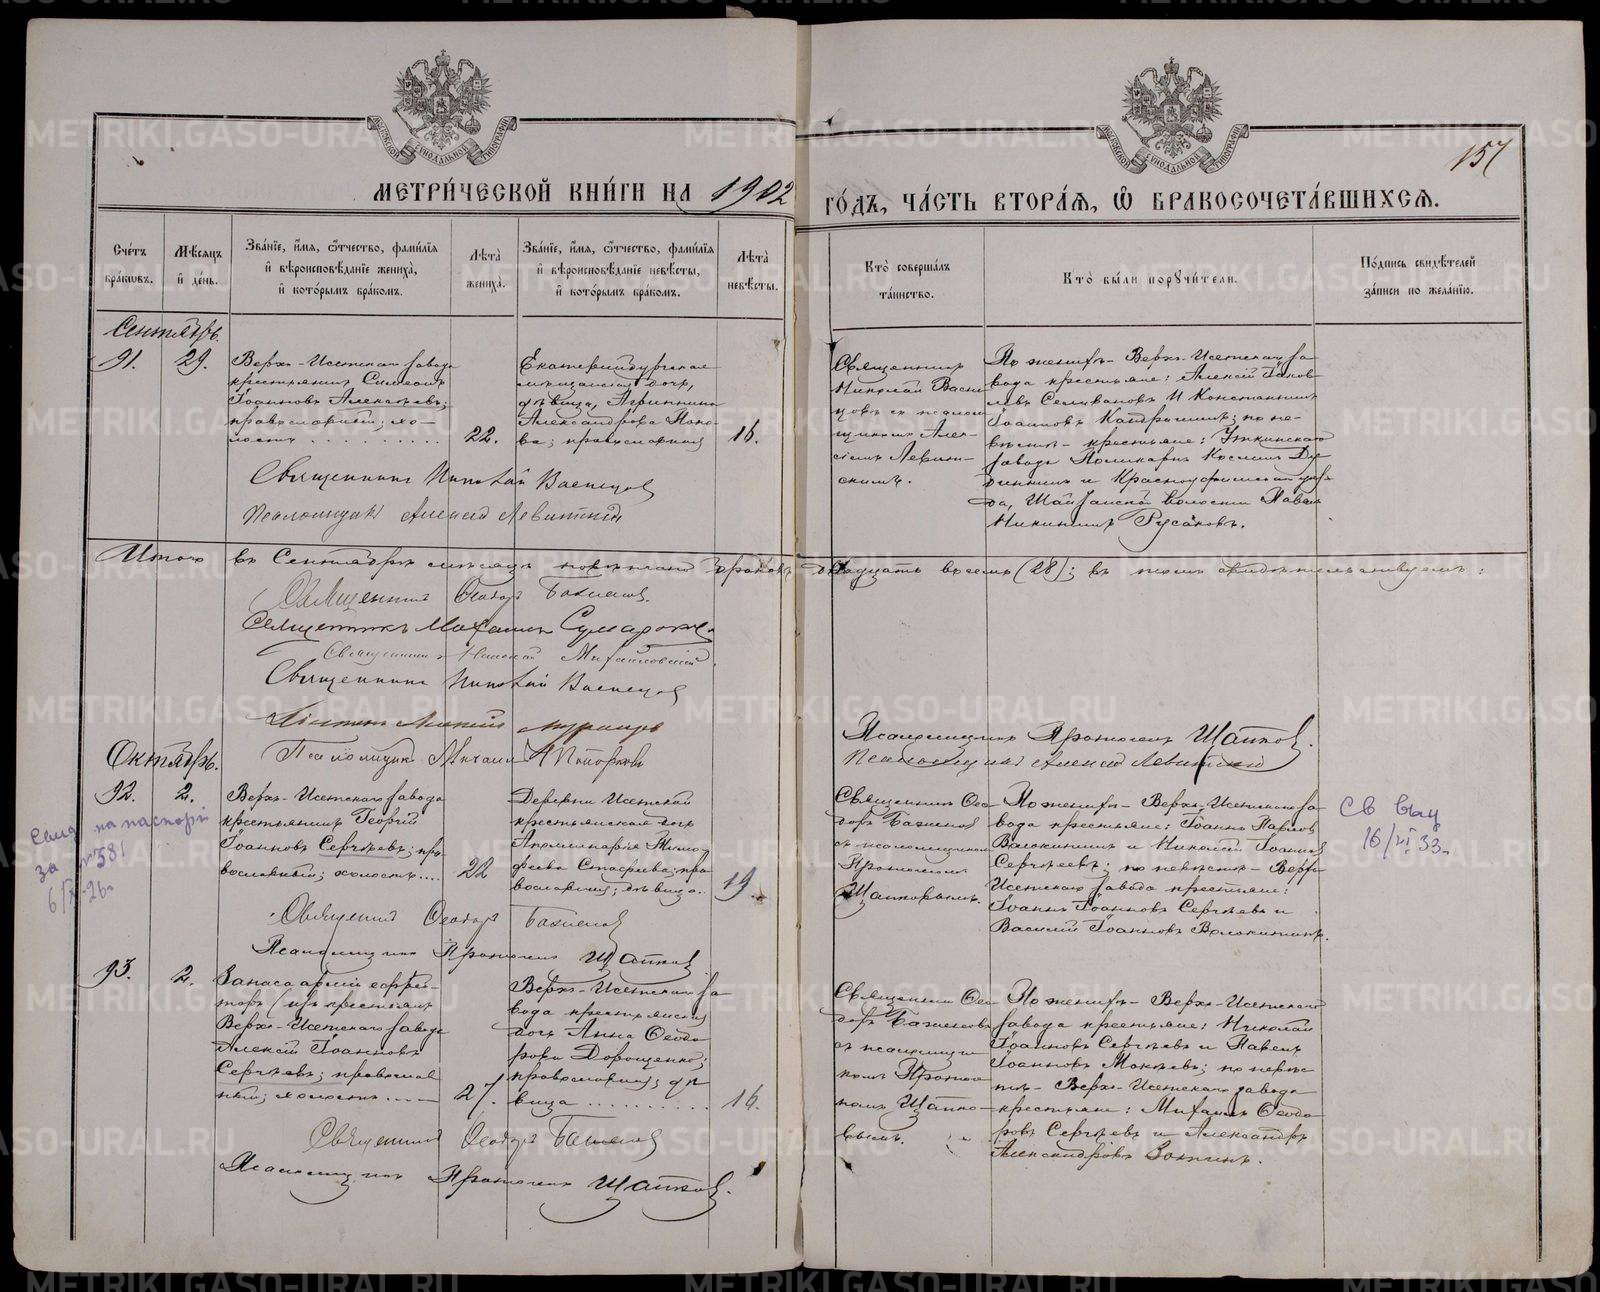 МЕТРИ́ЧЕСКОЙ КНИ́ГИ НА 1902
ГО́ДЪ, ЧА́СТЬ ВТОРА́Ѧ, Ѽ БРАКОСОЧЕТА́ВШИХСѦ.
157
Сче́тъ бра́кѡвъ.
Мѣ́сѧцъ и҆ де́нь.
Зва́нїе, и҆́мѧ, ѻ҆́тчество, фами́лїѧ и҆ вѣроисповѣ́данїе жениха̀, и҆ кото́рымъ бра́комъ.
Лѣ́та жениха̀.
Зва́нїе, и҆́мѧ, ѻ҆́тчество, фами́лїѧ и҆ вѣроисповѣ́данїе невѣ́сты, и҆ кото́рымъ бра́комъ.
Лѣ́та невѣ́сты.
Кто̀ соверша́лъ та́инство.
Кто̀ бы́ли порꙋчи́тели.
По́дпись свидѣ́телей за́писи по жела́нїю.
Сентябрь.
91.
29.
Верхъ-Исетскаго завода
крестьянинъ Симеонъ
Іоанновъ Алексѣевъ;
православный; хо-
лостъ
22.
Екатеринбургская
мѣщанская дочь,
дѣвица, Агриппина
Александрова Попо-
ва; православная
16.
Священникъ
Николай Васне-
цовъ съ псалом-
щикомъ Алек-
сѣемъ Левит-
скимъ.
По женихѣ- Верхъ-Исетскаго за-
вода крестьяне: Алексѣй Іаков-
левъ Селивановъ и Константинъ
Іоанновъ
по не-
вѣстѣ- крестьяне: Уткинскаго
завода Поликарпъ Козминъ
и Красноуфимскаго уѣз-
да, Шайтанской волости Павелъ
Никитинъ Русаковъ.
Священникъ Николай Васнецов
Псаломщикъ Алексей Левитский
Итого въ Сентябрѣ мѣсяцѣ повѣнчано браковъ двадцать восемь (28); въ томъ свидѣтельствуемъ:
Священникъ Ѳеодоръ Баженов.
Священникъ Михаилъ
Священникъ Николай
Священникъ Николай Васнецов
Псаломщикъ Михаил
Псаломщикъ Щапков.
Псаломщик Алексей Левитский
Октябрь.
92.
2.
Верхъ-Исетскаго завода
крестьянинъ Георгій
Іоанновъ Сергѣевъ; пра-
вославный; холостъ....
22
Деревни Исетской
крестьянская дочь
Апполинарія Тимо-
феева пра-
вославная; дѣвица.
19.
Священникъ Ѳео-
доръ Баженовъ
съ псаломщикомъ
Щапковымъ.
По женихѣ- Верхъ-Исетскаго за-
вода крестьяне: Іоаннъ Павлов
Волокитинъ и Николай Іоаннов
Сергѣевъ; по невѣстѣ- Верхъ-
Исетскаго завода крестьяне:
Іоаннъ Іоанновъ Сергѣевъ и
Василій Іоанновъ Волокитинъ.
на паспорт
за № 581
св выд
16/VI 33г
Священникъ Ѳеодоръ Баженов
Псаломщикъ Щапков
93.
2.
Запаса арміи ефрей-
торъ (изъ крестьянъ
Верхъ-Исетскаго завода
Алексій Іоанновъ
Сергѣевъ; православ
ный; холостъ
27.
Верхъ-Исетскаго за-
вода крестьянская
дочь Анна Ѳеодо-
рова Дорощенко;
православная; дѣ-
вица
16.
Священникъ Ѳео-
доръ Баженовъ
съ псаломщи-
комъ
Щапко-
вымъ.
По женихѣ- Верхъ-Исетскаго
завода крестьяне: Николай
Іоанновъ Сергѣевъ и Павелъ
Іоанновъ по невѣс-
тѣ- Верхъ-Исетскаго завода
крестьяне: Михаилъ Ѳеодо-
ровъ Сергѣевъ и Александръ
Александровъ
Священникъ Ѳеодоръ Баженов
Псаломщикъ Щапков.
METRIKI.GASO-URAL.RU